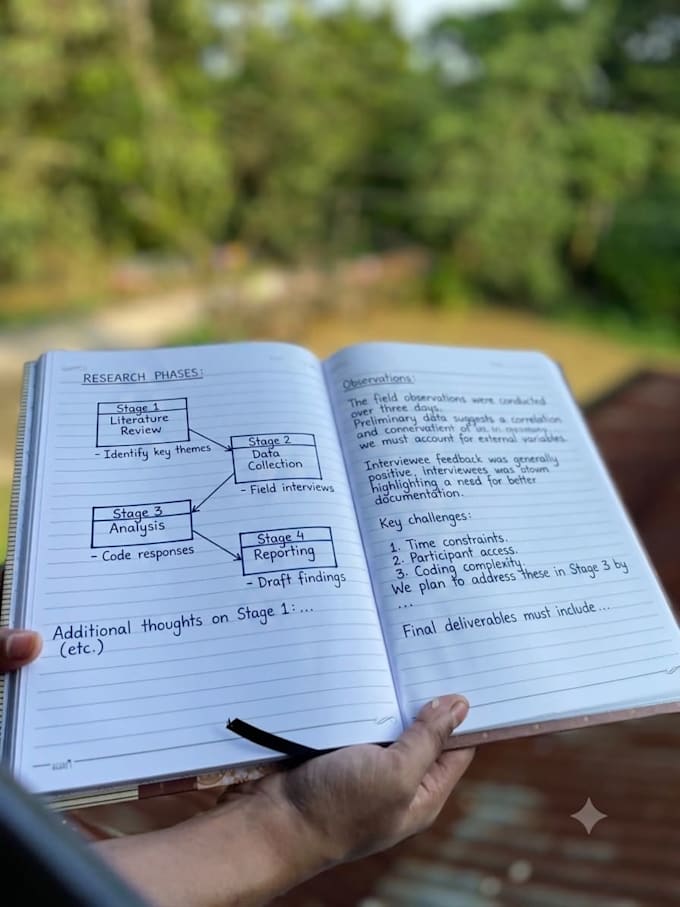 RESEARCH PHASES:
Stage 1
Literature
Review
- Identify key themes
Stage 2
Data
Collection
- Field interviews
Stage 3
Analysis
- Code responses
Stage 4
Reporting
- Draft findings
Additional thoughts on Stage 1: ...
(etc.)
Observations:
The field observations were conducted
over three days.
Preliminary data suggests a correlation
and
we must account for external variables.
Interviewee feedback was generally
positive, interviewees was
highlighting a need for better
documentation.
Key challenges:
1. Time constraints.
2. Participant access.
3. Coding complexity.
We plan to address these in Stage 3 by
...
Final deliverables must include...